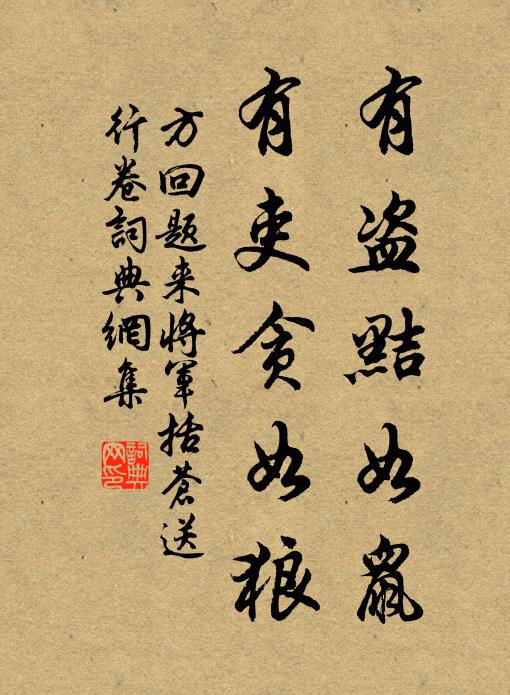 有盗黠如鼠
有吏贪如狼
方回题来将軍括蒼送
行卷詞典網集
詞典网印